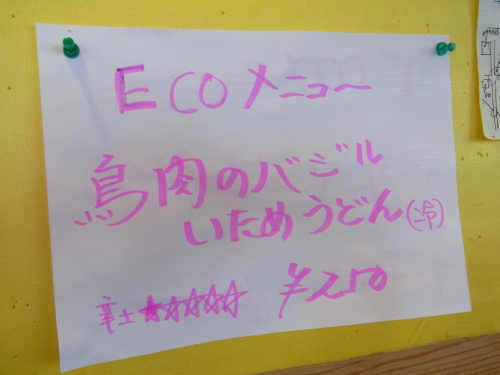 ECOメニュー
鳥肉のバジル
いためうどん(冷)
辛さ★☆☆☆☆ ¥250